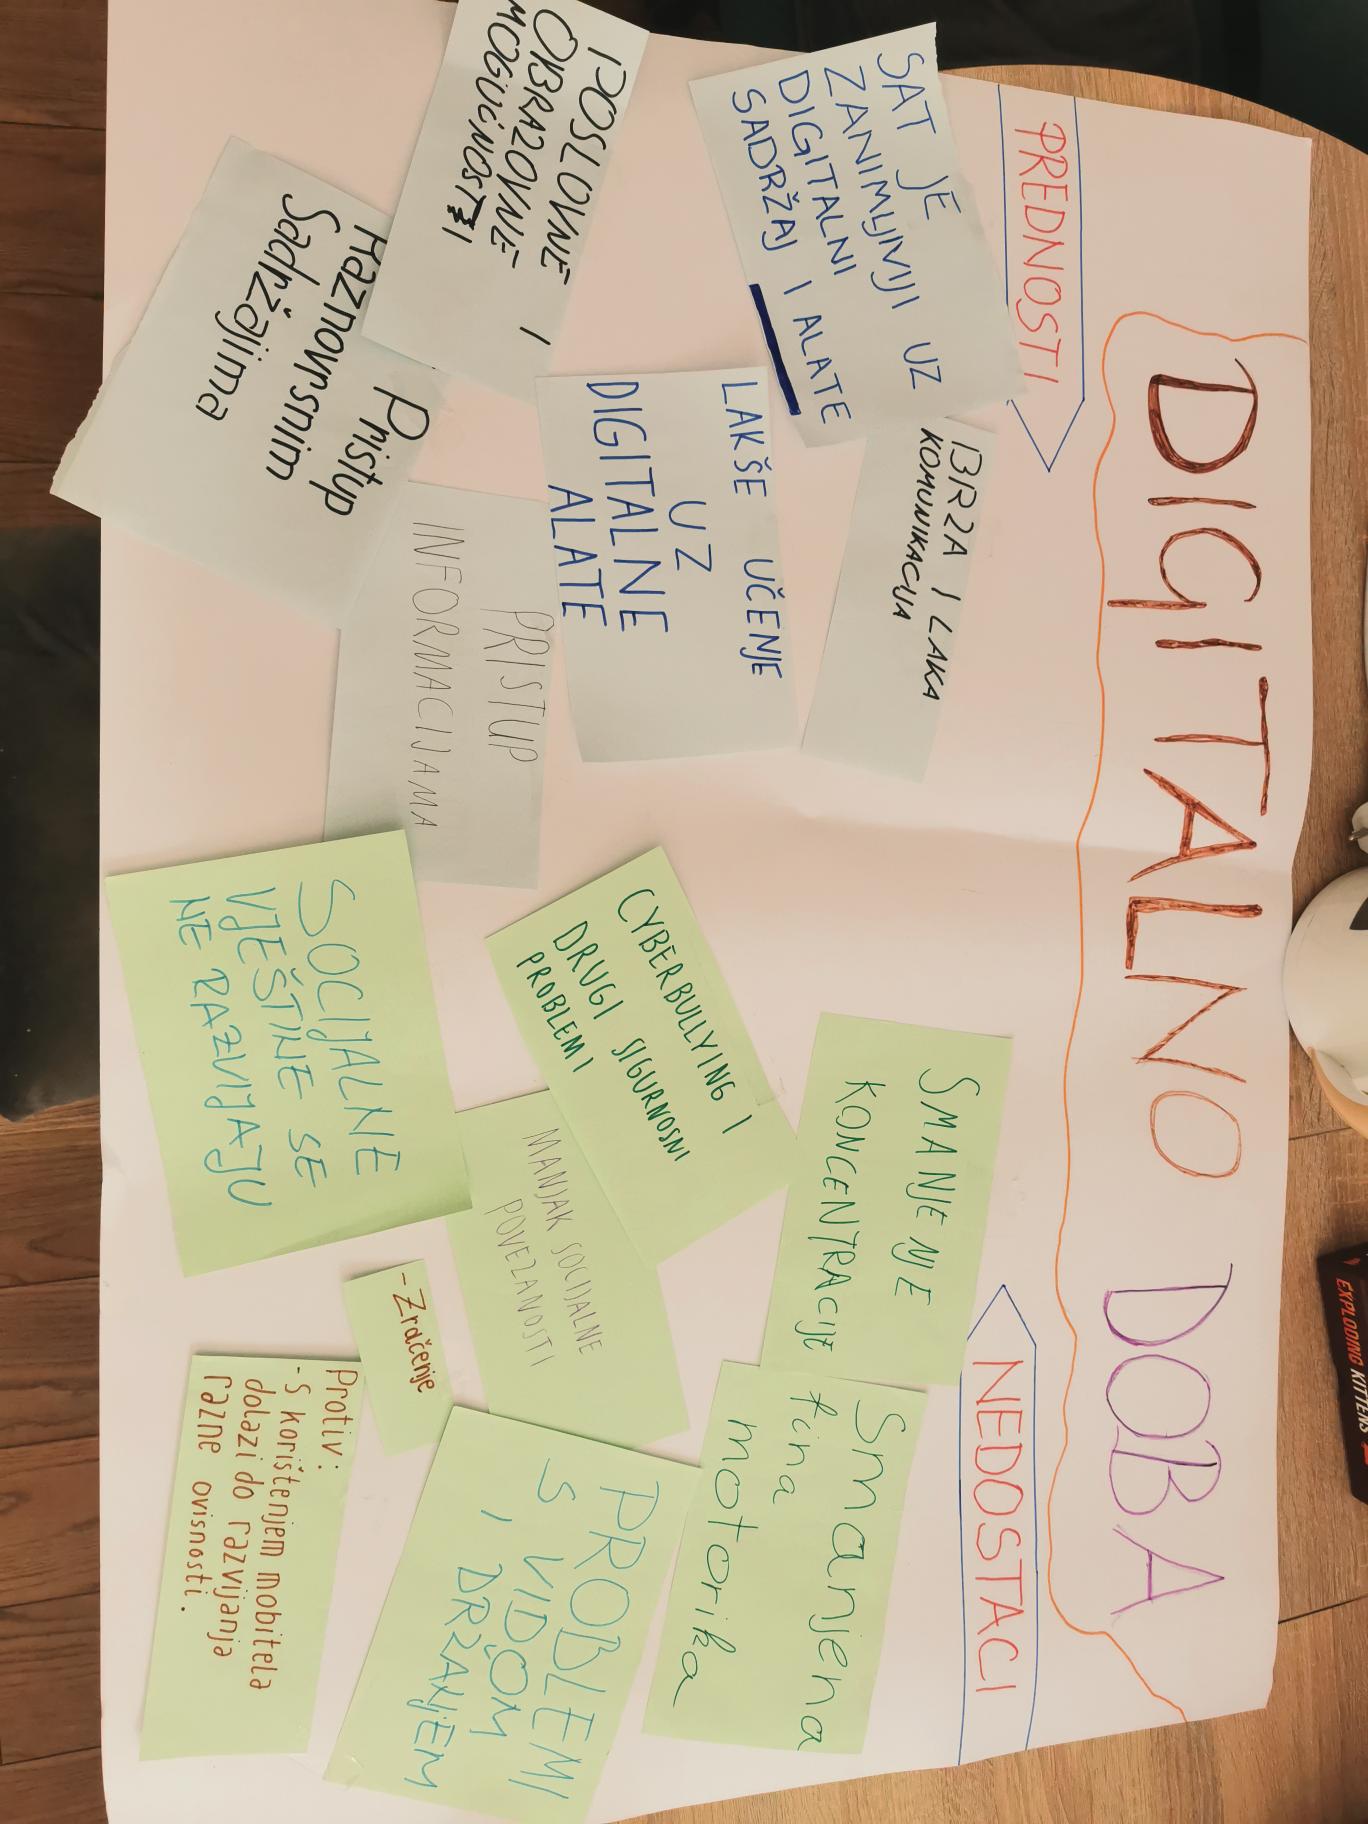 DIGITALNO DOBA
PREDNOSTI
SAT JE
ZANIMLJIVIJI UZ
DIGITALNI
SADRŽAJ I ALATE
BRZA I LAKA
KOMUNIKACIJA
LAKŠE UČENJE
UZ
DIGITALNE
ALATE
POSLOVNE I
OBRAZOVNE
MOGUĆNOSTI
Pristup
Raznovrsnim
Sadržajima
PRISTUP
INFORMACIJAMA
NEDOSTACI
SMANJENJE
KONCENTRACIJE
CYBERBULLYING I
DRUGI SIGURNOSNI
PROBLEMI
MANJAK SOCIJALNE
POVEZANOSTI
SOCIJALNE
VJEŠTINE SE
NE RAZVIJAJU
Smanjena
fina
motorika
PROBLEMI
S VIDOM
I DRŽANJEM
- Zračenje
Protiv:
- S korištenjem mobitela
dolazi do razvijanja
razne ovisnosti.
EXPLODING KITTENS